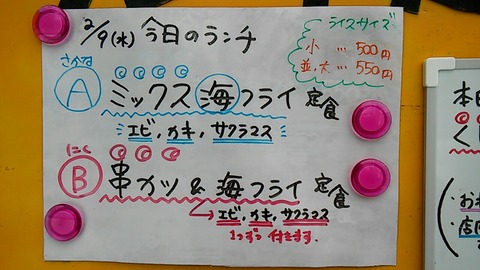 2/9(水) 今日のランチ
ライスサイズ
小 … 500円
並,大… 550円
さかな
A ミックス海フライ 定食
エビ,カキ,サクラマス
にく
B 串カツ&海フライ 定食
エビ,カキ,サクラマス
1つずつ付きます.
本日